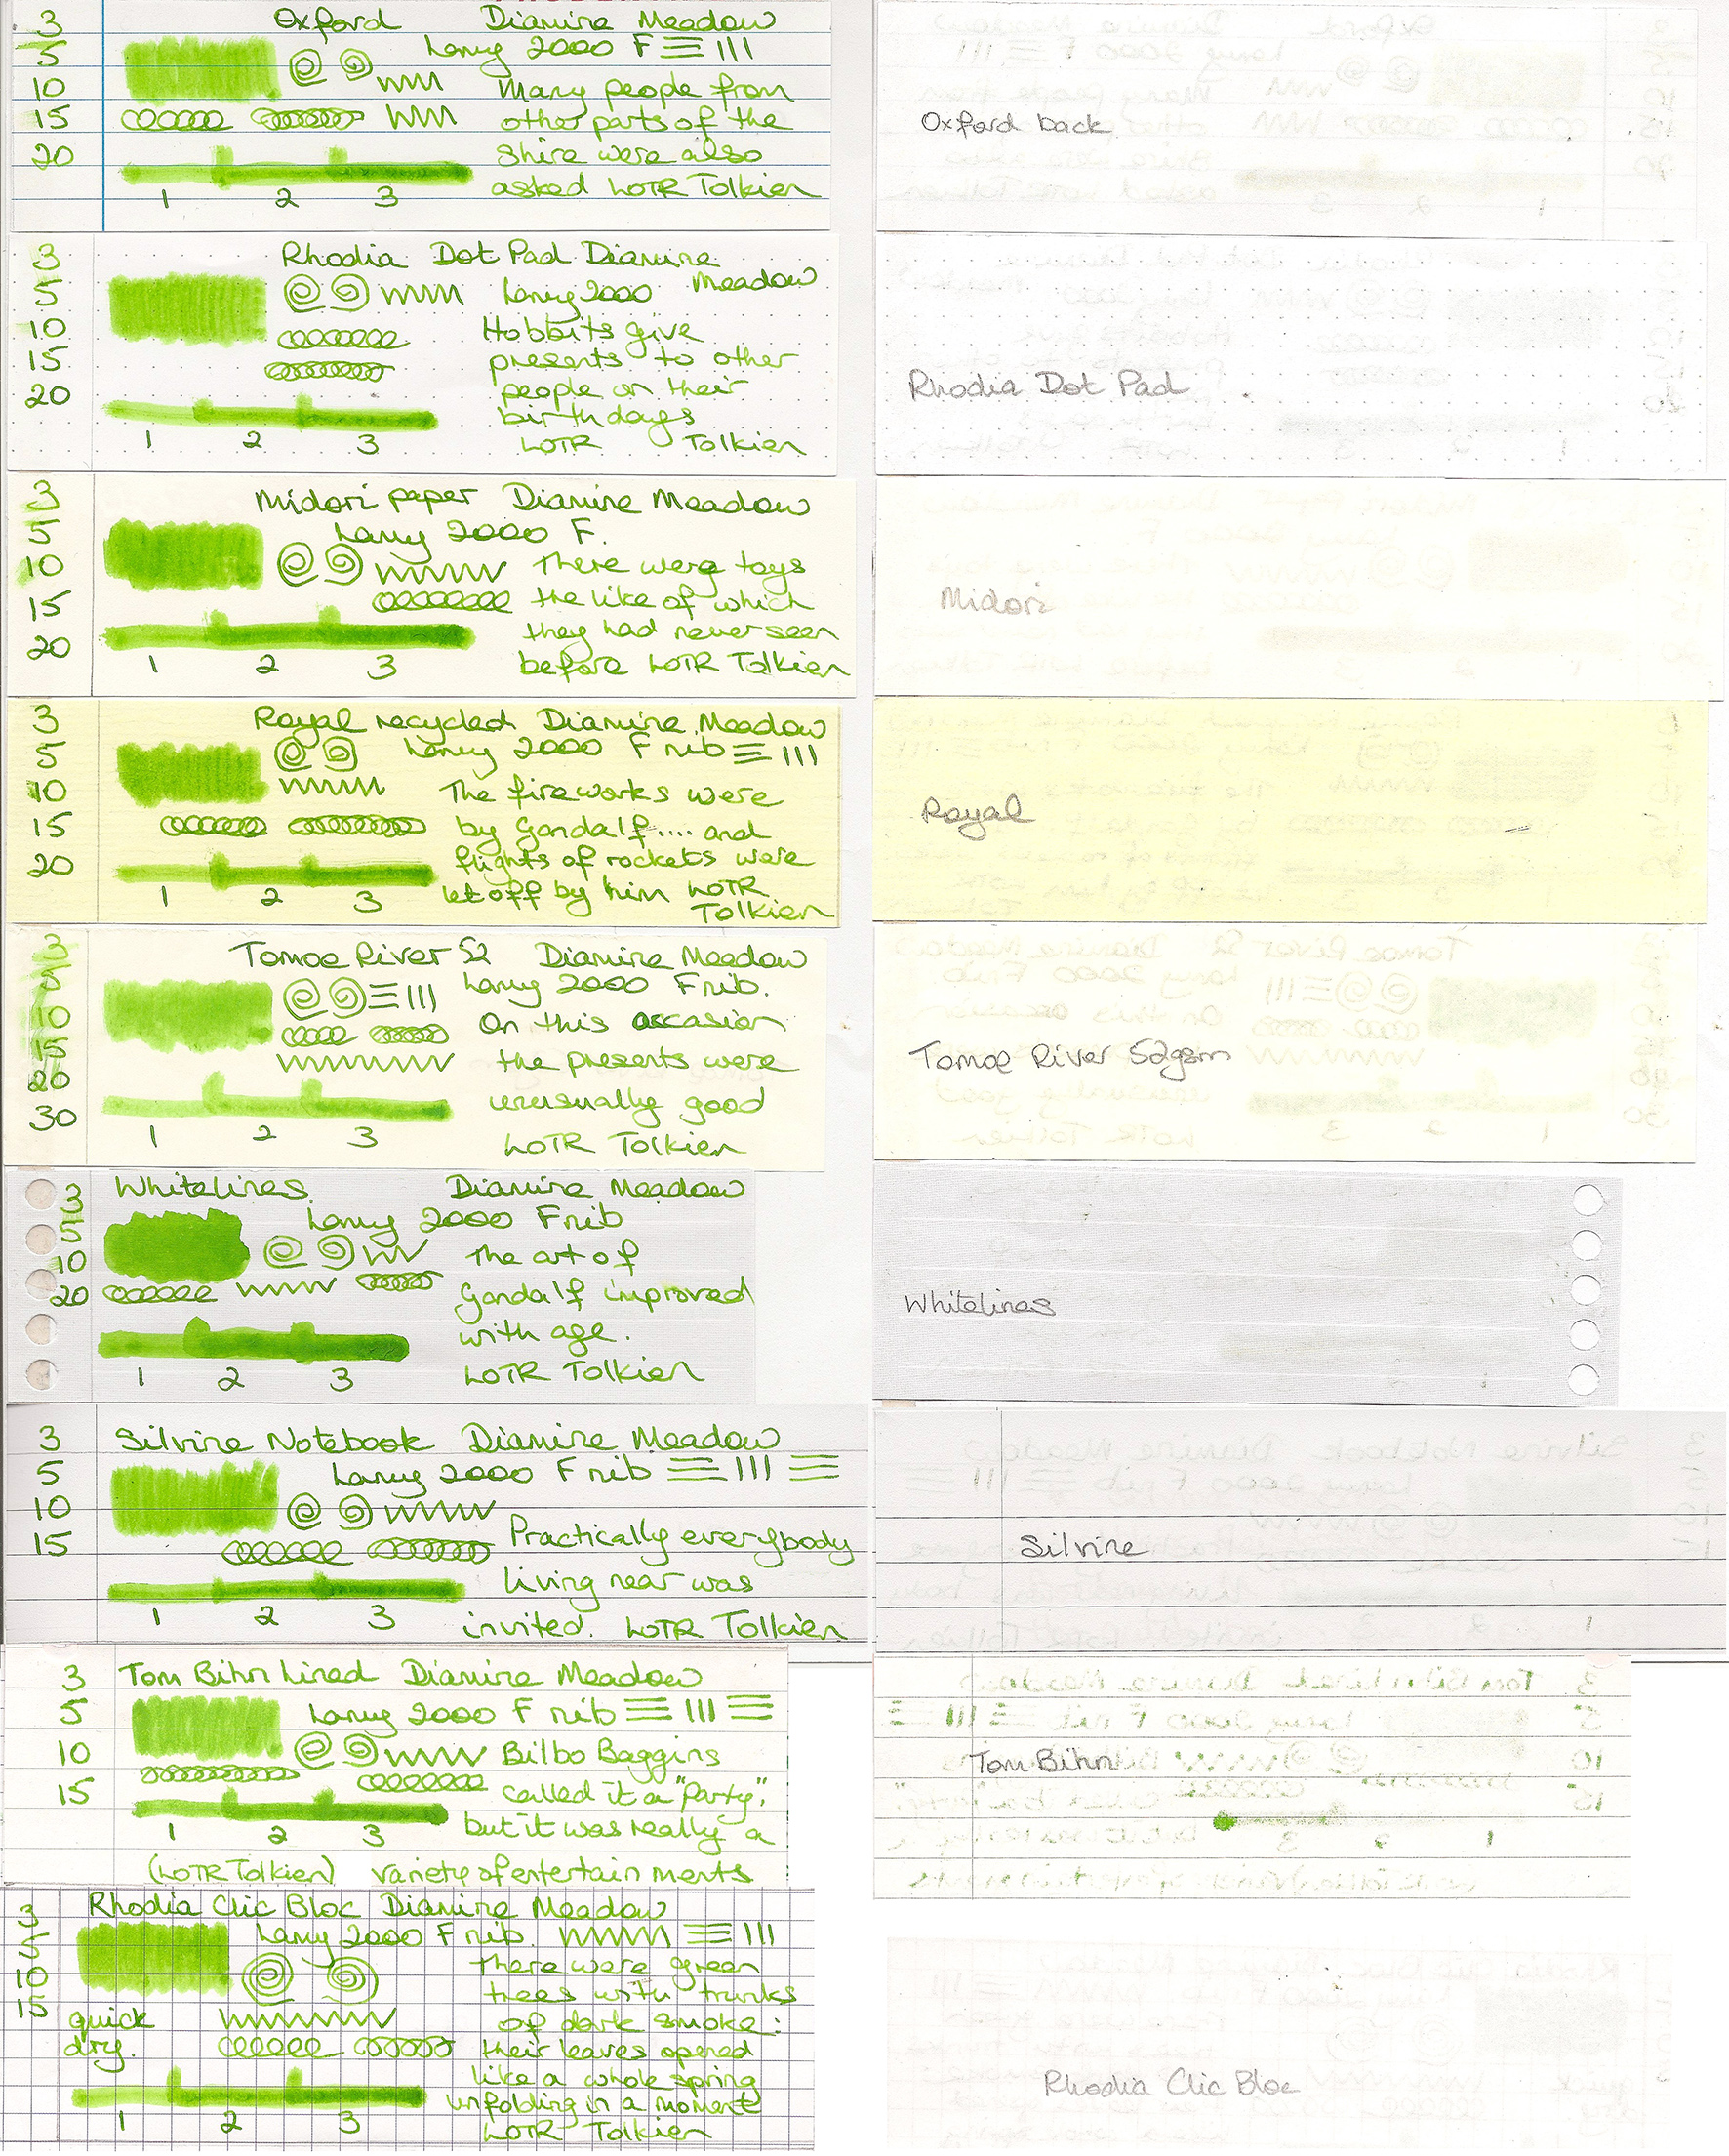 3 Oxford Diamine Meadow
5 Lamy 2000 F
10 Many people from
15 other parts of the
20 Shire were also
asked LOTR Tolkien
1 2 3
Oxford back
3 Rhodia Dot Pad Diamine
5 Lamy 2000 Meadow
10 Hobbits give
15 presents to other
20 people on their
birthdays
1 2 3 LOTR Tolkien
Rhodia Dot Pad
3 Midori paper Diamine Meadow
5 Lamy 2000 F.
10 There were toys
15 the like of which
20 they had never seen
1 2 3 before LOTR Tolkien
Midori
3 Royal recycled Diamine Meadow
5 Lamy 2000 F nib
10 The fireworks were
15 by Gandalf.... and
20 flights of rockets were
1 2 3 let off by him LOTR
Tolkien
Royal
3 Tomoe River 52 Diamine Meadow
5 Lamy 2000 F nib.
10 On this occasion
15 the presents were
20
30 unusually good
1 2 3 LOTR Tolkien
Tomoe River 52gsm
3 Whitelines Diamine Meadow
5 Lamy 2000 F nib
10 The art of
20 Gandalf improved
with age.
1 2 3 LOTR Tolkien
Whitelines
3 Silvine Notebook Diamine Meadow
5 Lamy 2000 F nib
10
15 Practically everybody
living near was
1 2 3 invited. LOTR Tolkien
Silvine
3 Tom Bihn Lined Diamine Meadow
5 Lamy 2000 F nib
10 Bilbo Baggins
15 called it a "party",
1 2 3 but it was really a
(LOTR Tolkien) variety of entertainments
Tom Bihn
3 Rhodia Clic Bloc Diamine Meadow
5 Lamy 2000 F nib.
10 There were green
15 trees with trunks
quick of dark smoke:
dry. their leaves opened
like a whole spring
unfolding in a moment
1 2 3 LOTR Tolkien
Rhodia Clic Bloc